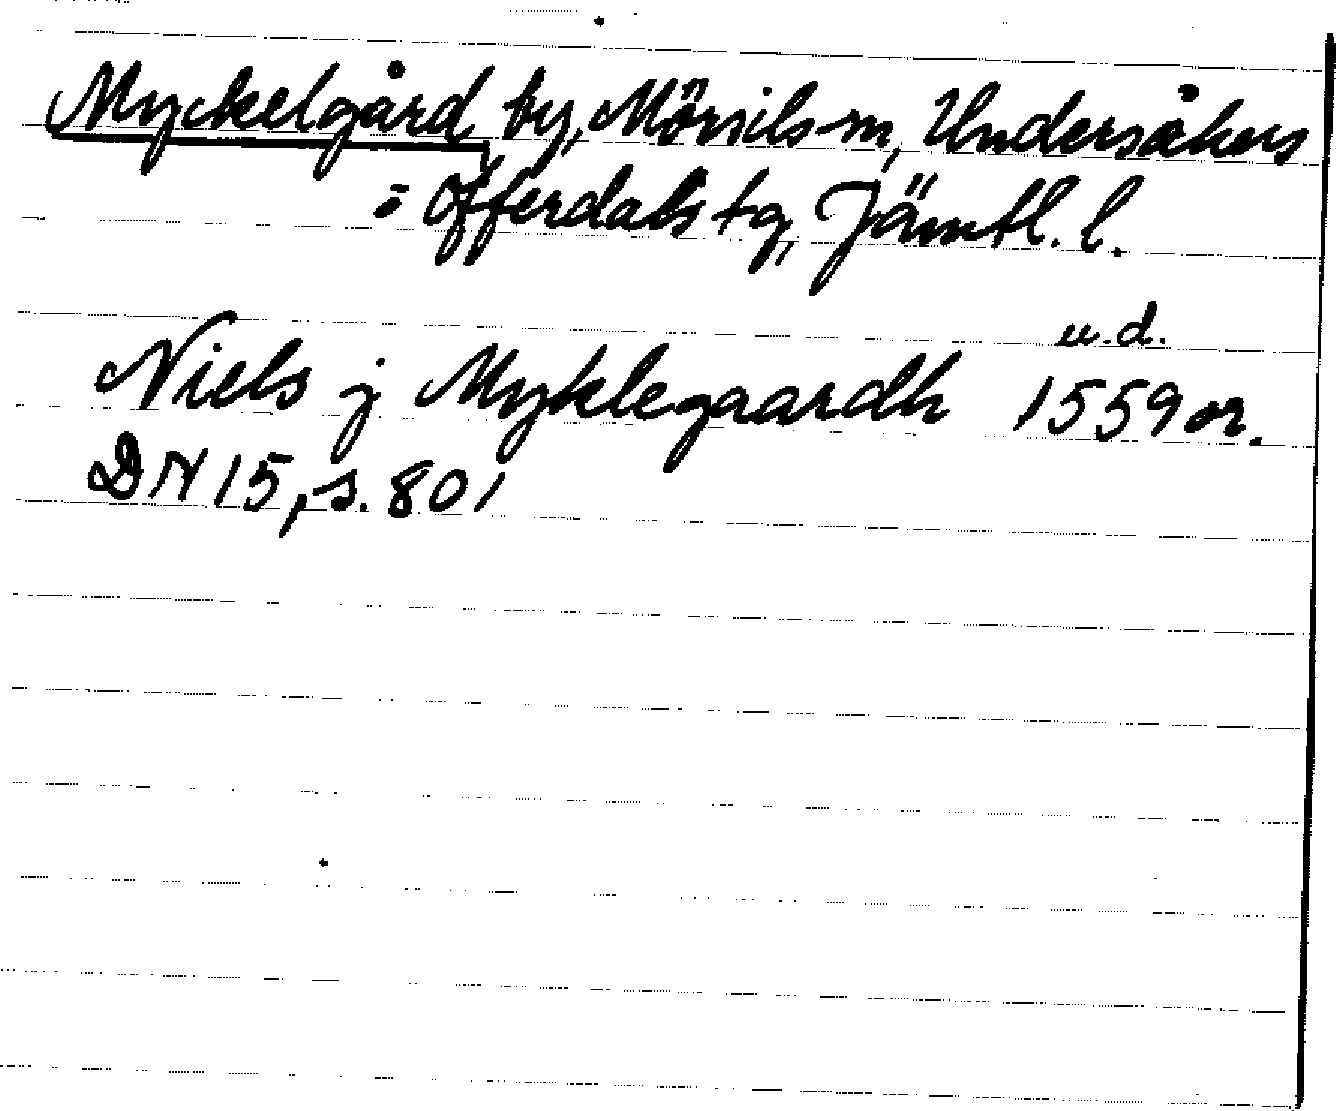 Myckelgård, by, Mörsils sn, Undersåkers
o Offerdals tg, Jämtl. l.
u.d.
Niels j Myklegaardh 1559 or.
DN 15, s. 801